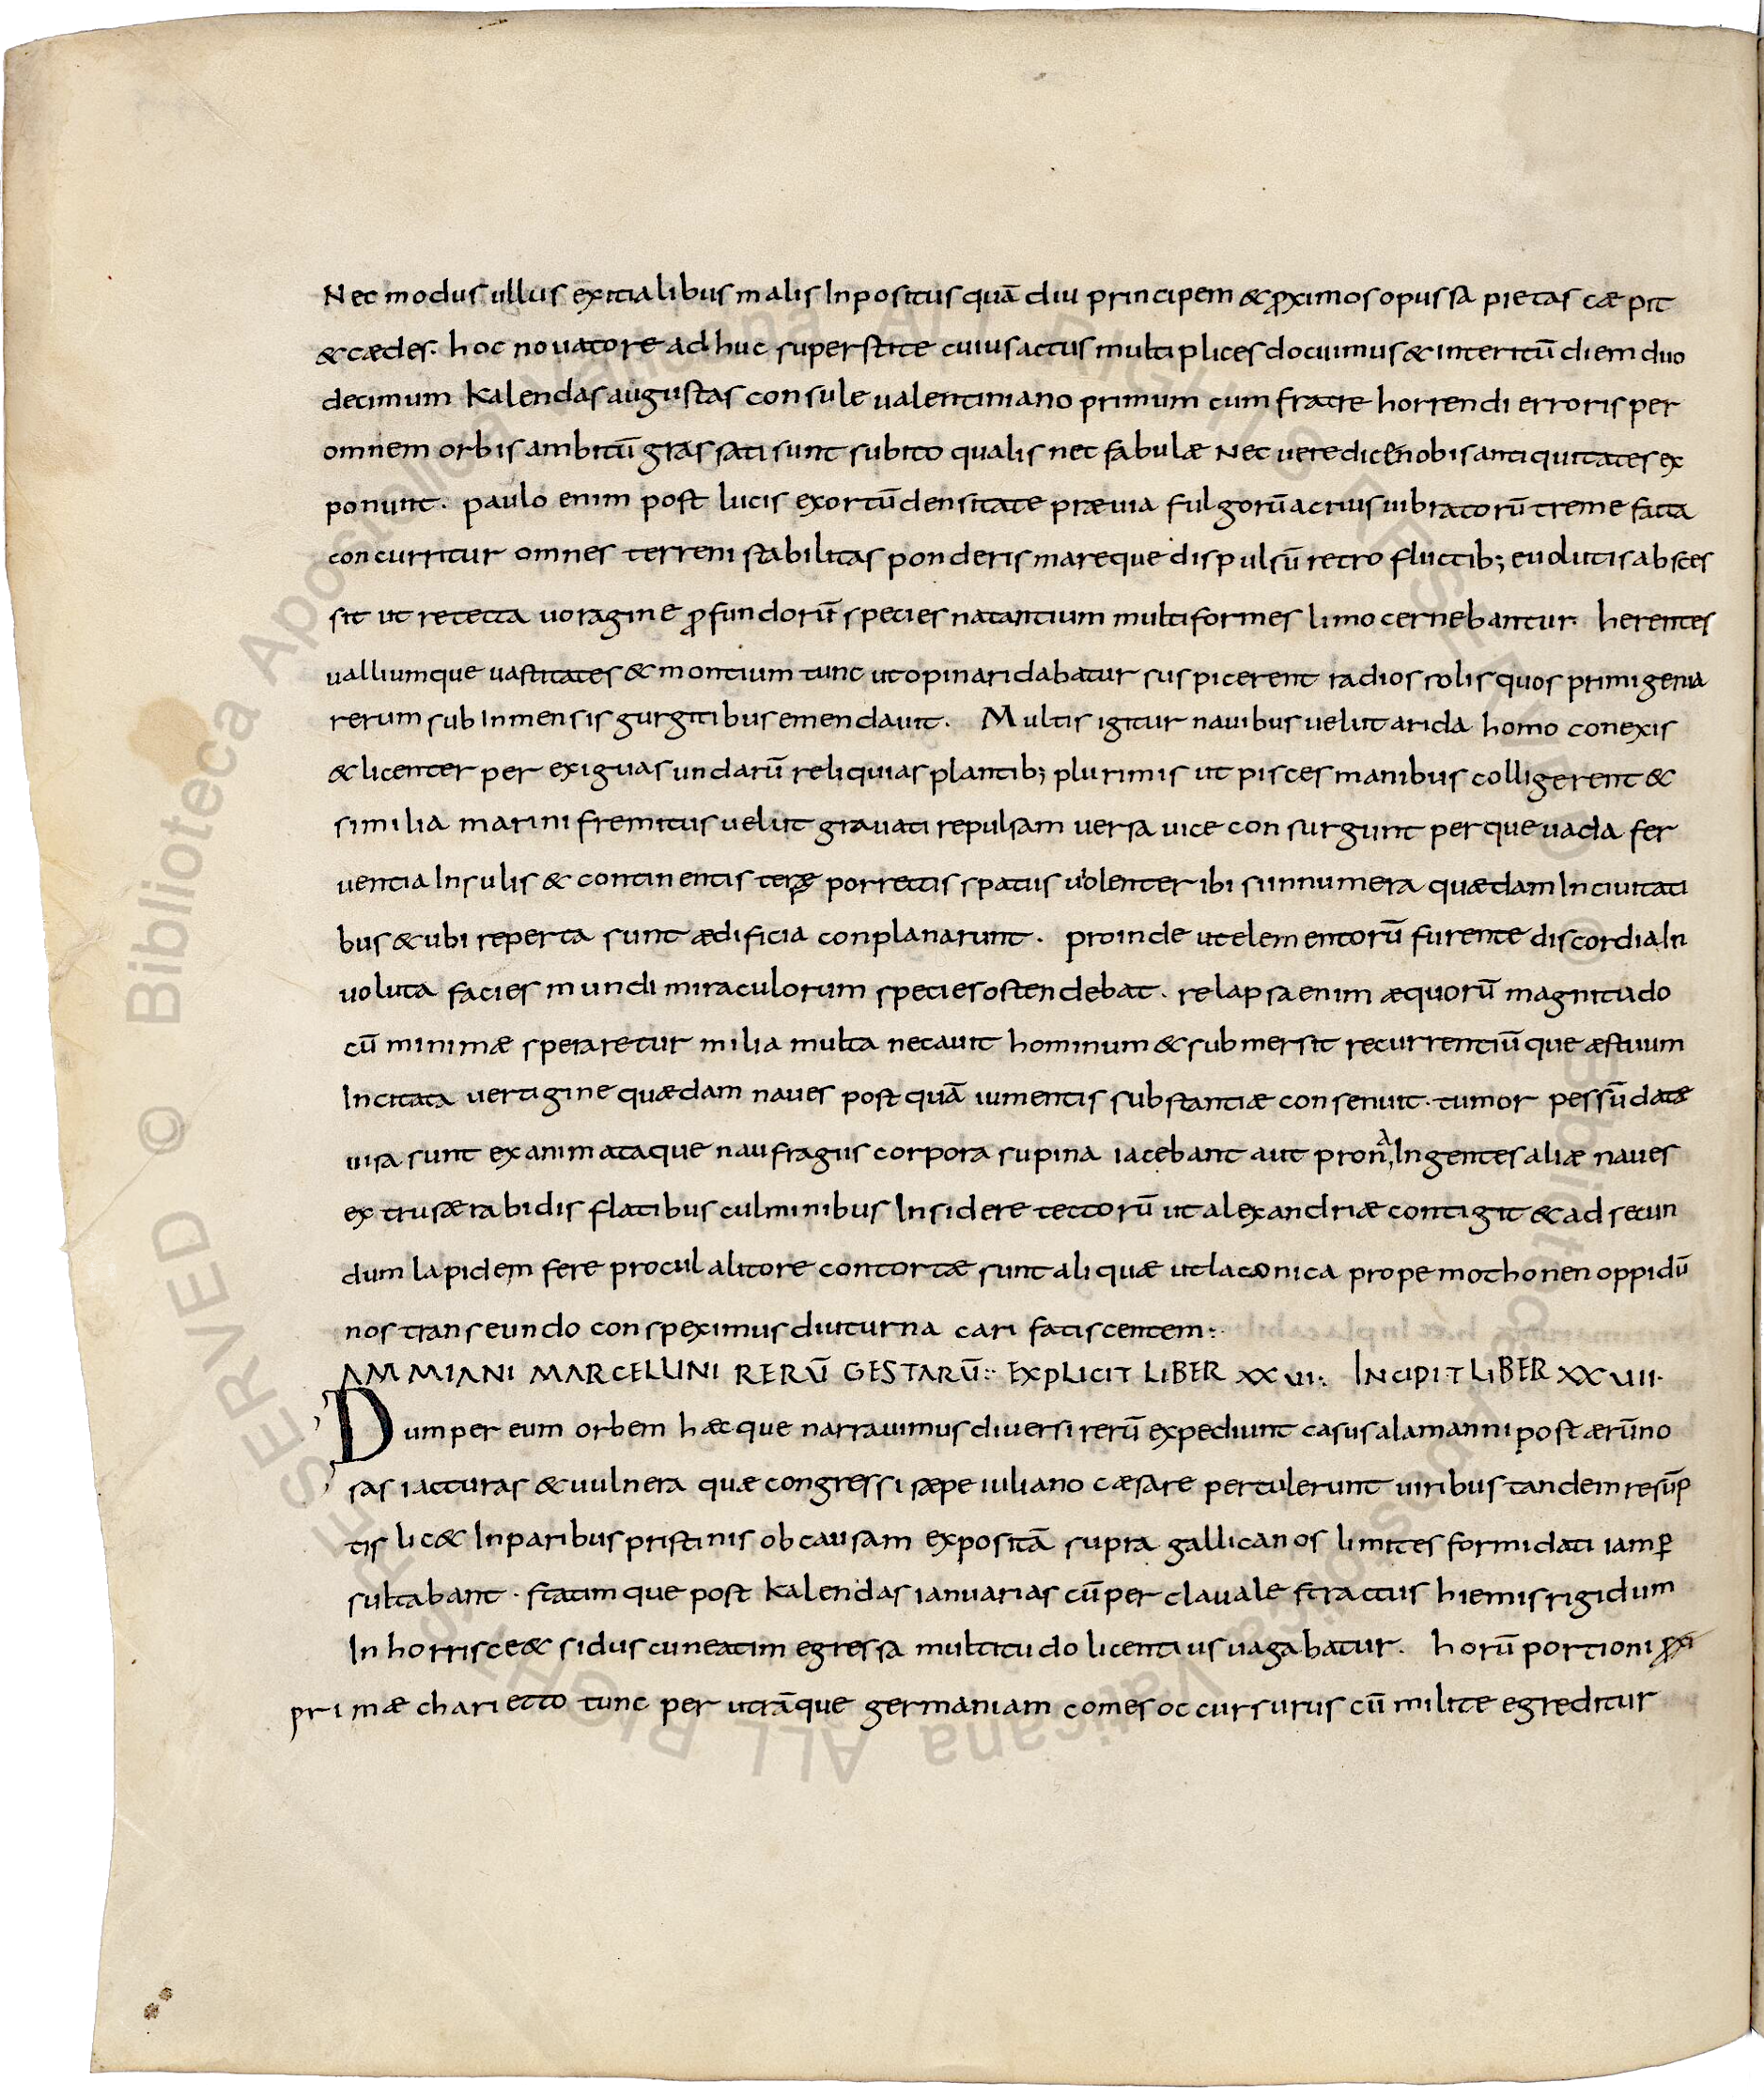 Nec modus ullus exitialibus malis Inpositus quā diu principem & ꝓximos opus sa pietas cæ pit
& cædes. hoc nouatore ad huc superstite cuius actus multiplices docuimus & interitū diem duo
decimum Kalendas augustas consule ualentiniano primum cum fratre horrendi erroris per
omnem orbis ambitū grassati sunt subito qualis nec fabulæ Nec uere dicēnobis antiquitates ex
ponunt. paulo enim post lucis exortū densitate præuia fulgorū acrius uibratorū treme facta
concurritur omnes terreni stabilitas ponderis mareque dispulsū retro fluctib; euolutis absces
sit ut retecta uoragine ꝓfundorū species natantium multiformes limo cernebantur. herentes
ualliumque uastitates & montium tunc ut opinari dabatur suspicerent radios solis quos primigenia
rerum sub Inmensis gurgitibus emendauit. Multis igitur nauibus uelut arida homo conexis
& licenter per exiguas undarū reliquias plantib; plurimis ut pisces manibus colligerent &
similia marini fremitus uelut grauati repulsam uersa uice consurgunt perque uada fer
uentia Insulis & continentis porrectis spatiis uiolenter ibi sinnumera quædam In ciuitati
bus & ubi reperta sunt ædificia conplanarunt. proinde ut elementorū furente discordia In
uoluta facies mundi miraculorum species ostendebat. relapsa enim æquorū magnitudo
cū minimæ speraretur milia multa necauit hominum & submersit recurrentiūque æstuum
Incitata uertagine quædam naues post quā iumentis substantiæ consenuit. tumor pessū datæ
uisa sunt exanimataque naufragiis corpora supina iacebant aut prona, Ingentes aliæ naues
extrusæ rabidis flatibus culminibus Insidere tectorū ut alexandriæ contigit & ad secun
dum lapidem fere procul alitore contortæ sunt aliquæ ut laconica prope mothonen oppidū
nos transeundo conspeximus diuturna cari fatiscentem:.
AMMIANI MARCELLINI RERŪ GESTARŪ:: EXPLICIT LIBER XXVI:. INCIPIT LIBER XXVII.
Dum per eum orbem hæc que narrauimus diuersi rerū expediunt casus alamanni post ærūno
sas iacturas & uulnera quæ congressi sæpe iuliano cæsare pertulerunt uiribus tandem resūp
tis lic& Inparibus pristinis ob causam expositā supra gallicanos limites formidati iam ꝑ
sultabant. statimque post Kalendas ianuarias cū per clauale stractus hiemis rigidum
Inhorrisce& sidus cuneatim egressa multitudo licentius uagabatur. horū portioni
primæ charietto tunc per utrāque germaniam comes occursurus cū milite egreditur